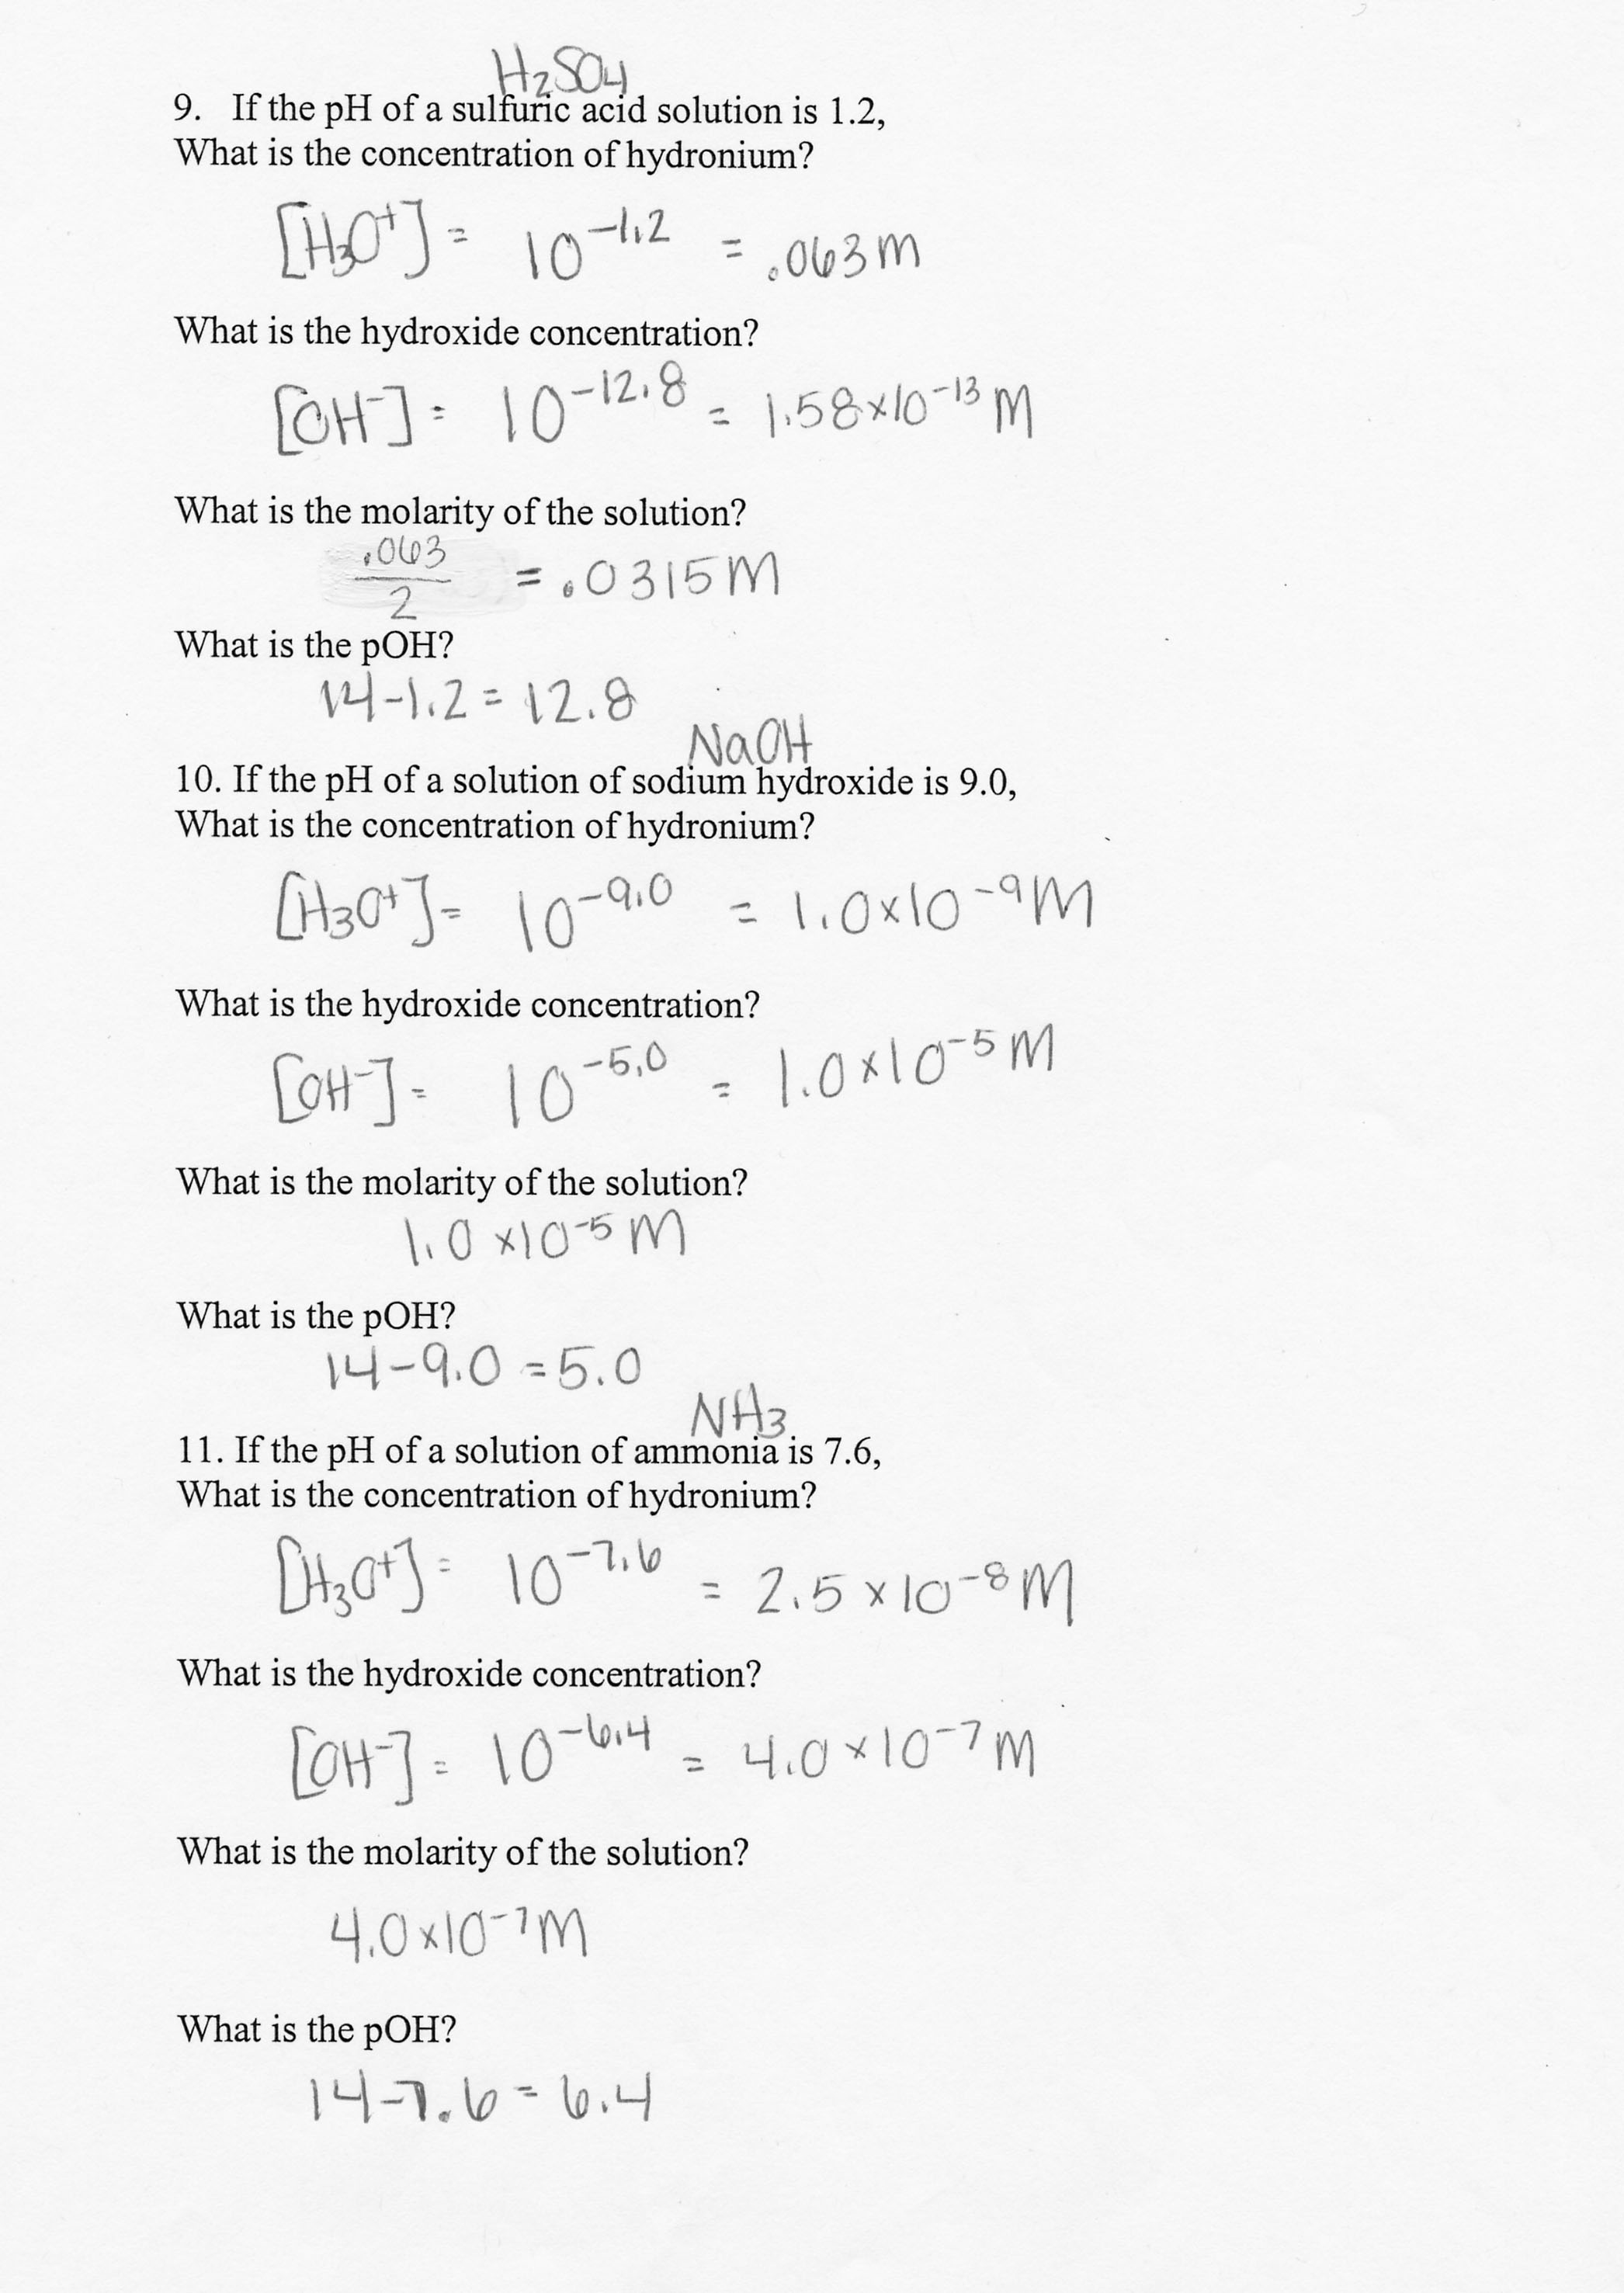 H₂SO₄
9. If the pH of a sulfuric acid solution is 1.2,
What is the concentration of hydronium?
[H₃O⁺] = 10⁻¹·² = .063M
What is the hydroxide concentration?
[OH⁻] = 10⁻¹²·⁸ = 1.58×10⁻¹³ M
What is the molarity of the solution?
.063/2 = .0315M
What is the pOH?
14-1.2 = 12.8
NaOH
10. If the pH of a solution of sodium hydroxide is 9.0,
What is the concentration of hydronium?
[H₃O⁺] = 10⁻⁹·⁰ = 1.0×10⁻⁹M
What is the hydroxide concentration?
[OH⁻] = 10⁻⁵·⁰ = 1.0×10⁻⁵M
What is the molarity of the solution?
1.0×10⁻⁵M
What is the pOH?
14-9.0 = 5.0
NH₃
11. If the pH of a solution of ammonia is 7.6,
What is the concentration of hydronium?
[H₃O⁺] = 10⁻⁷·⁶ = 2.5×10⁻⁸M
What is the hydroxide concentration?
[OH⁻] = 10⁻⁶·⁴ = 4.0×10⁻⁷M
What is the molarity of the solution?
4.0×10⁻⁷M
What is the pOH?
14-7.6 = 6.4